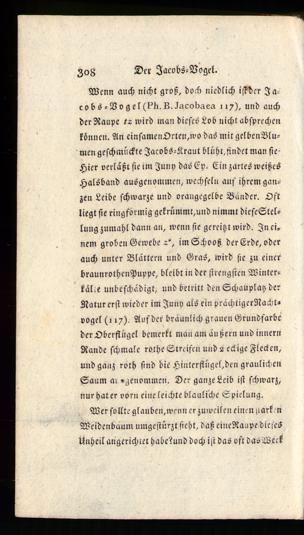 308 Der Jacobs-Vogel.
Wenn auch nicht groß, doch niedlich ist der Ja-
cobs-Vogel (Ph. B. Jacobaea 117), und auch
der Raupe t2 wird man dieses Lob nicht absprechen
können. An einsamen Orten, wo das mit gelben Blu-
men geschmückte Jacobs-Kraut blüht, findet man sie.
Hier verläßt sie im Juny das Ey. Ein zartes weißes
Halsband ausgenommen, wechseln auf ihrem gan-
zen Leibe schwarze und orangegelbe Bänder. Oft
liegt sie ringförmig gekrümmt, und nimmt diese Stel-
lung zumahl dann an, wenn sie gereizt wird. In ei-
nem groben Gewebe im Schooß der Erde, oder
auch unter Blättern und Gras, wird sie zu einer
braunrothen Puppe, bleibt in der strengsten Winter-
kälte unbeschädigt, und betritt den Schauplatz der
Natur erst wieder im Juny als ein prächtiger Nacht-
vogel (117). Auf der bräunlich grauen Grundfarbe
der Oberflügel bemerkt man am äußern und innern
Rande schmale rothe Streifen und 2 eckige Flecken,
und ganz roth sind die Hinterflügel, den graulichen
Saum ausgenommen. Der ganze Leib ist schwarz,
nur hat er vorn eine leichte blauliche Spielung.
Wer sollte glauben, wenn er zuweilen einen starken
Weidenbaum umgestürzt sieht, daß eine Raupe dieses
Unheil angerichtet habe? und doch ist das oft das Werk